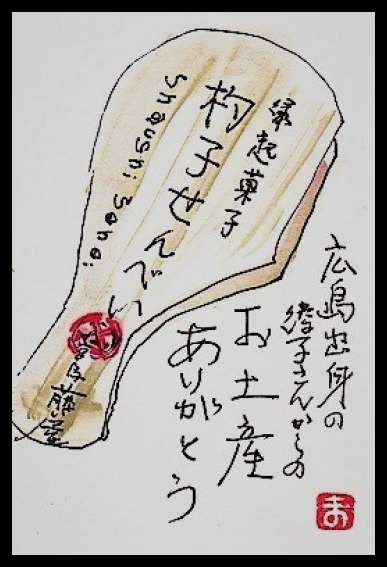 縁起菓子
杓子せんべい
宮島 藤い屋
広島出身の
子さんからの
お土産
ありがとう
ま